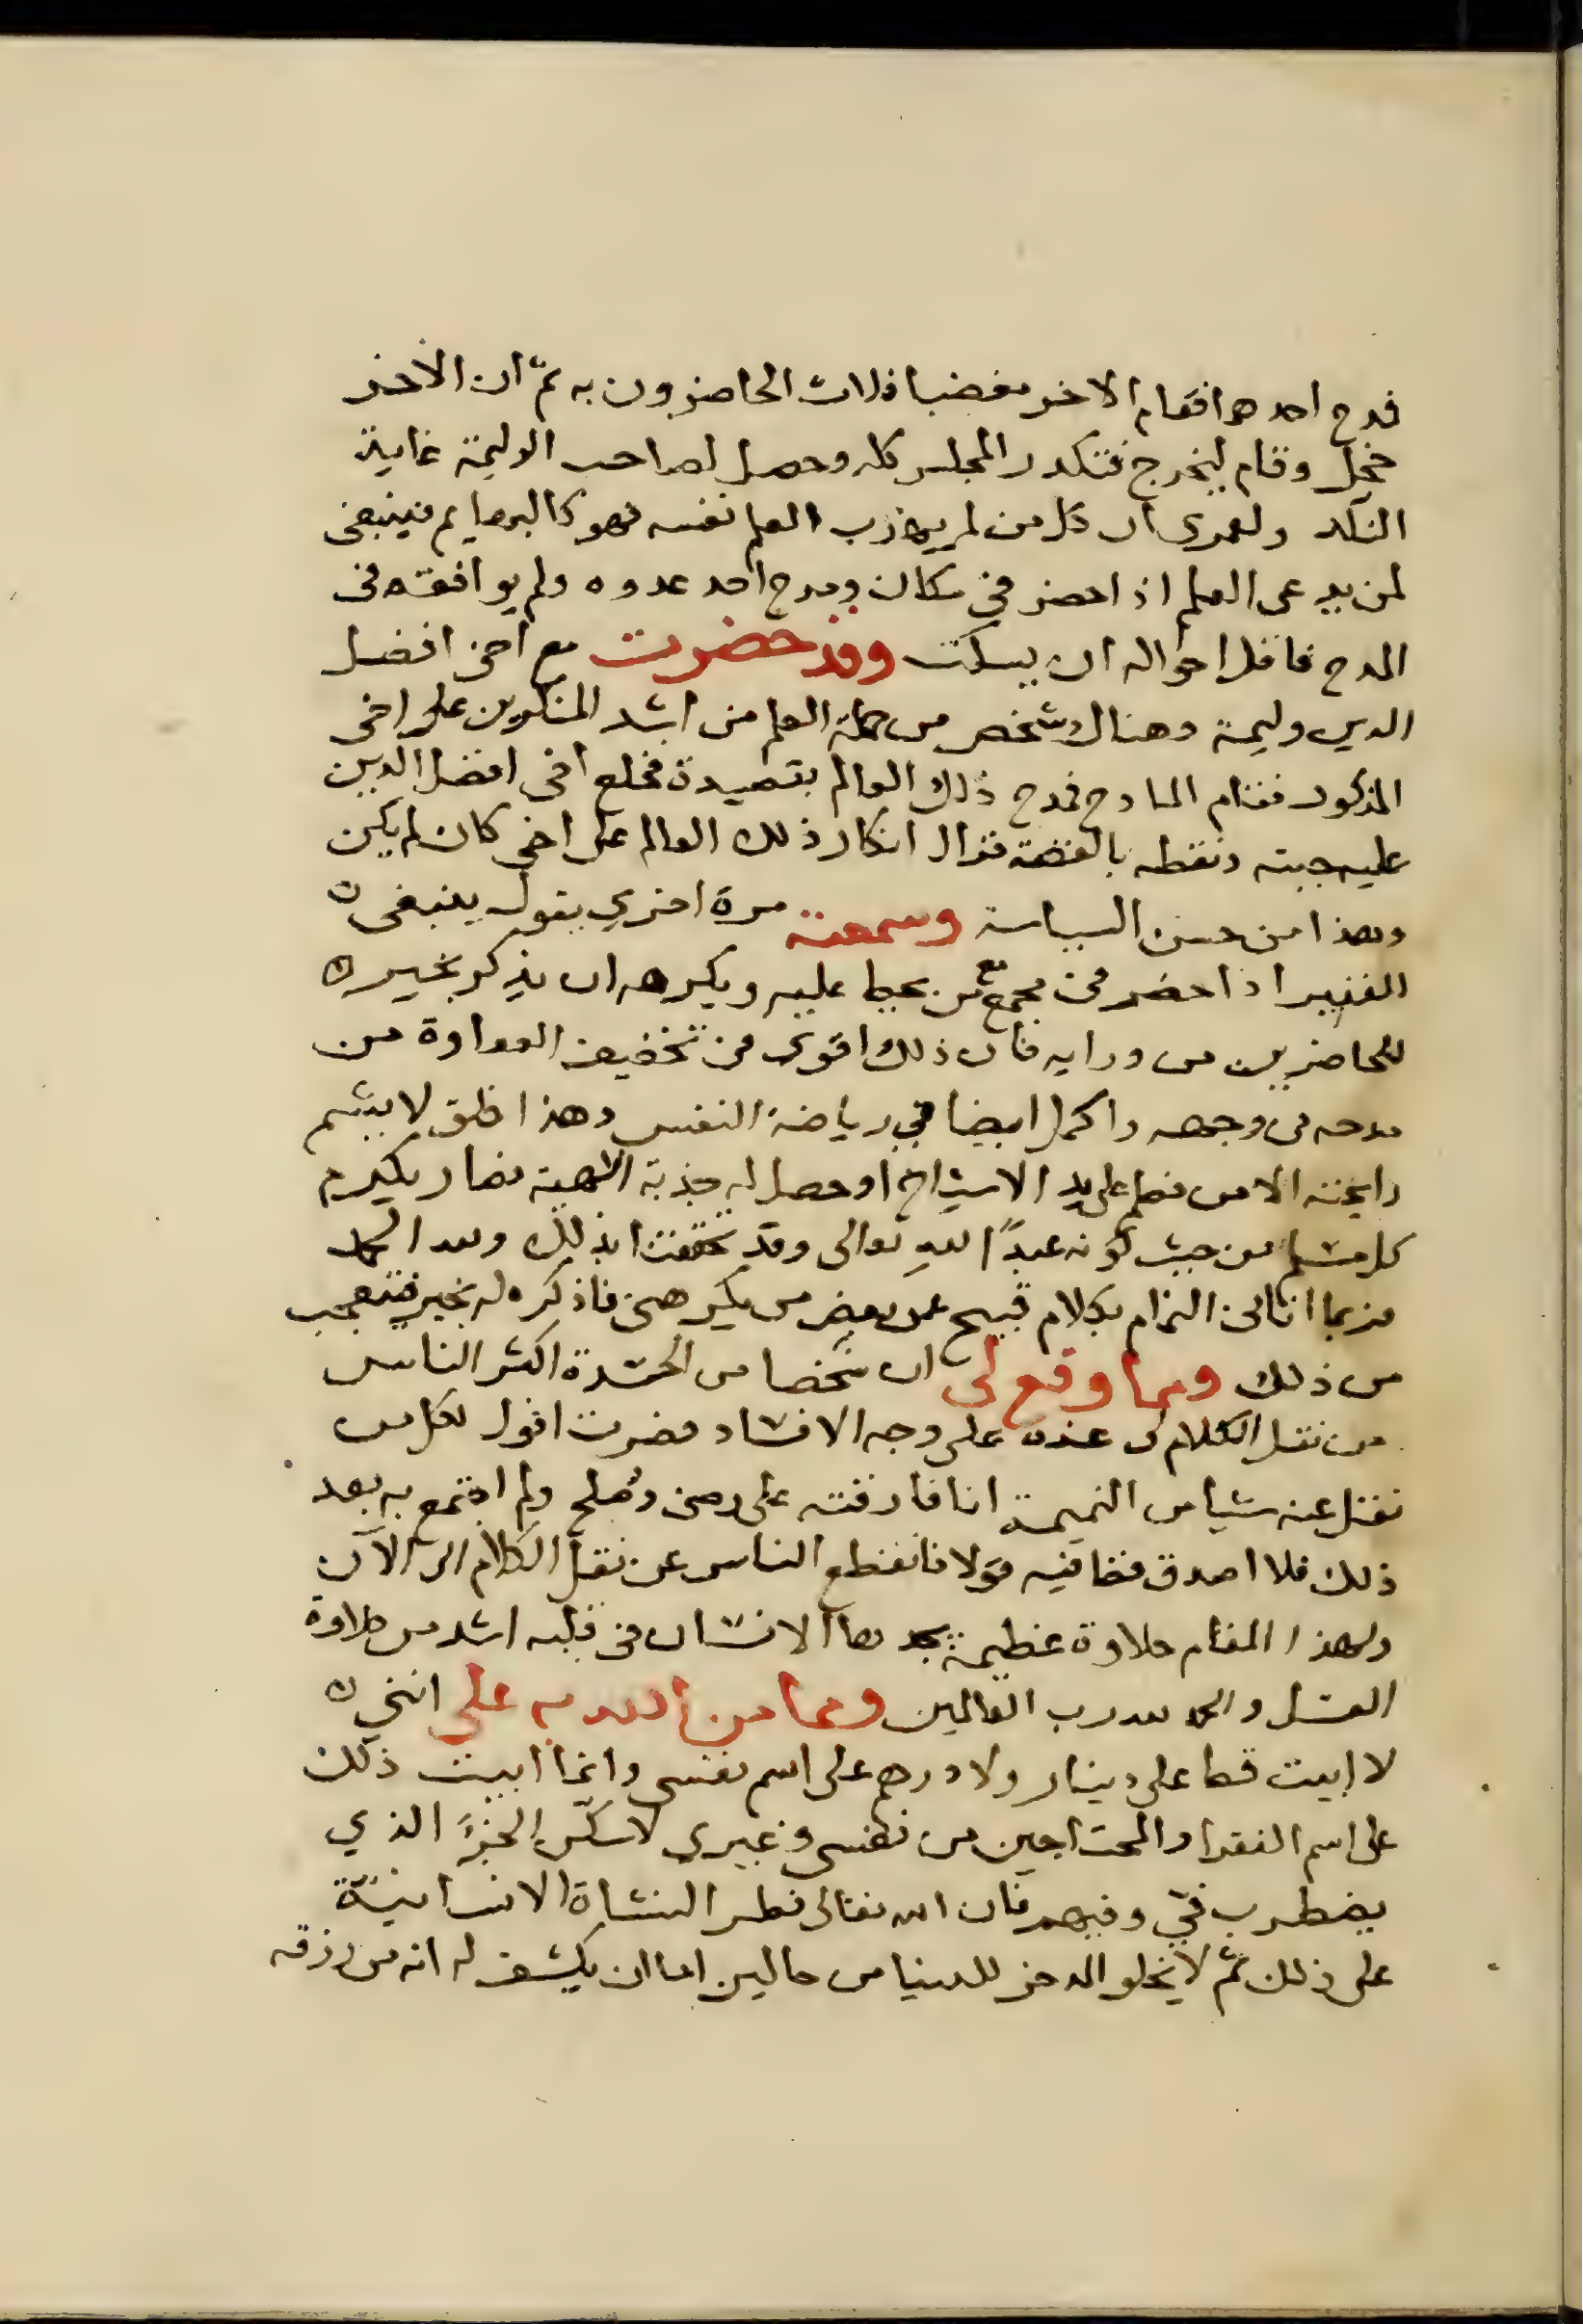 فمدح احدهما فقام الاخر مغضبا فلاث الحاضرون به ثم ان الاخر
خجل وقام ليخرج فتكدر المجلس كله وحصل لصاحب الوليمة غاية
النكد ولعمري ان كل من لم يهذب العلم نفسه فهو كالبهايم فينبغي
لمن يدعى العلم اذا حضر في مكان ومدح احد عدوه ولم يوافقه في
المدح فاقل احواله ان يسكت وقد حضرت مع اخي افضل
الدين وليمة وهناك شخص من حملة العلم من اشد المنكرين على اخي
المذكور فقام المادح فمدح ذلك العالم بقصيدة فخلع اخي افضل الدين
عليه جبته ونقطه بالفضة فزال انكار ذلك العالم على اخي كان لم يكن
وهذا من حسن السياسة وسمعته مرة اخري يقول ينبغي
للفقير اذا حضر في مجمع مع من يحط عليه ويكرهه ان يذكر بخير
للحاضرين من ورايه فان ذلك اقوى في تخفيف العداوة من
مدحه في وجهه واكمل ايضا في رياضة النفس وهذا خلق لا يشم
رايحته الا من فطم على يد الاشياخ او حصل له جذبة الاهية فصار يكرم
كل مسلم من حيث كونه عبدًا لله تعالى وقد تحققت بذلك ولله الحمد
فربما اتاني النمام بكلام قبيح عن بعض من يكرهني فاذكره له بخير فيتعجب
من ذلك ومما وقع لي ان شخصا من الحسدة اكثر الناس
من نقل الكلام لي عنه على وجه الافساد فصرت اقول لكل من
نقل عنه شيا من النميمة انا فارقته على رضى وصلح ولم اجتمع به بعد
ذلك فلا اصدق فيه قولا فانقطع الناس عن نقل الكلام الى الآن
ولهذا المقام حلاوة عظيمة يجدها الانسان في قلبه اشد من حلاوة
العسل والحمد لله رب العالمين ومما من الله به علي انني
لا ابيت قط على دينار ولا درهم على اسم نفسي وانما ابيت ذلك
على اسم الفقرا والمحتاجين من نفسي وغيري لاسكن الجزءَ الذي
يضطرب فيّ وفيهم فان الله تعالى فطر النشاة الانسانيّة
على ذلك ثم لا يخلو المدخر للدنيا من حالين اما ان يكشف له انه من رزقه